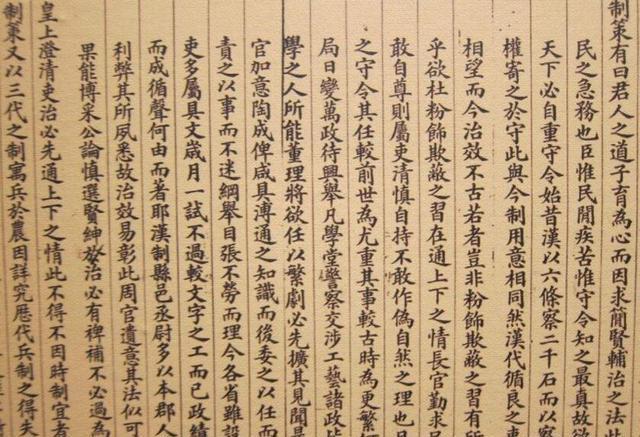 制策有曰君人之道子育為心而因求簡賢輔治之法此
民之急務也臣惟民間疾苦惟守令知之最真故欲
天下必自重守令始昔漢以六條察二千石而以察
權寄之於守此與今制用意相同然漢代循良之吏
相望而今治效不古若者豈非粉飾欺蔽之習有所
乎欲杜粉飾欺蔽之習在通上下之情長官勤求
敢自尊則屬吏清慎自持不敢作偽自然之理也
之守令其任較前世為尤重其事較古時為更繁
局日變萬政待興舉凡學堂警察交涉工藝諸政
學之人所能董理將欲任以繁劇必先擴其見聞
官加意陶成俾咸具溥通之知識而後委之以任而
責之以事而不迷綱舉目張不勞而理今各省雖設
吏多屬具文歲月一試不過較文字之工而已政績
而成循聲何由而著耶漢制縣邑丞尉多以本郡人
利弊其所夙悉故治效易彰此周官遺意其法似可
果能博采公論慎選賢紳於治必有裨補不必過為
皇上澄清吏治必先通上下之情此不得不因時制宜者
制策又以三代之制寓兵於農因詳究歷代兵制之得失